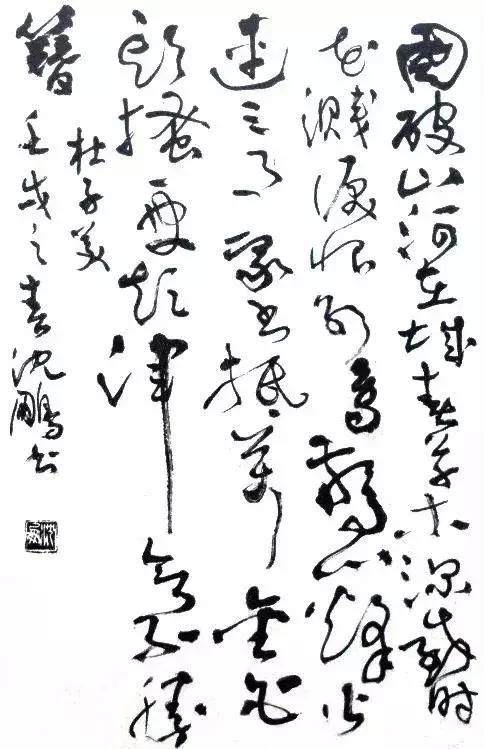 國破山河在城春草木深感时
花濺淚恨别鳥驚心烽火
連三月家书抵萬金白
頭搔更短渾欲不勝
簪
杜子美
壬戌之春沈鵬书